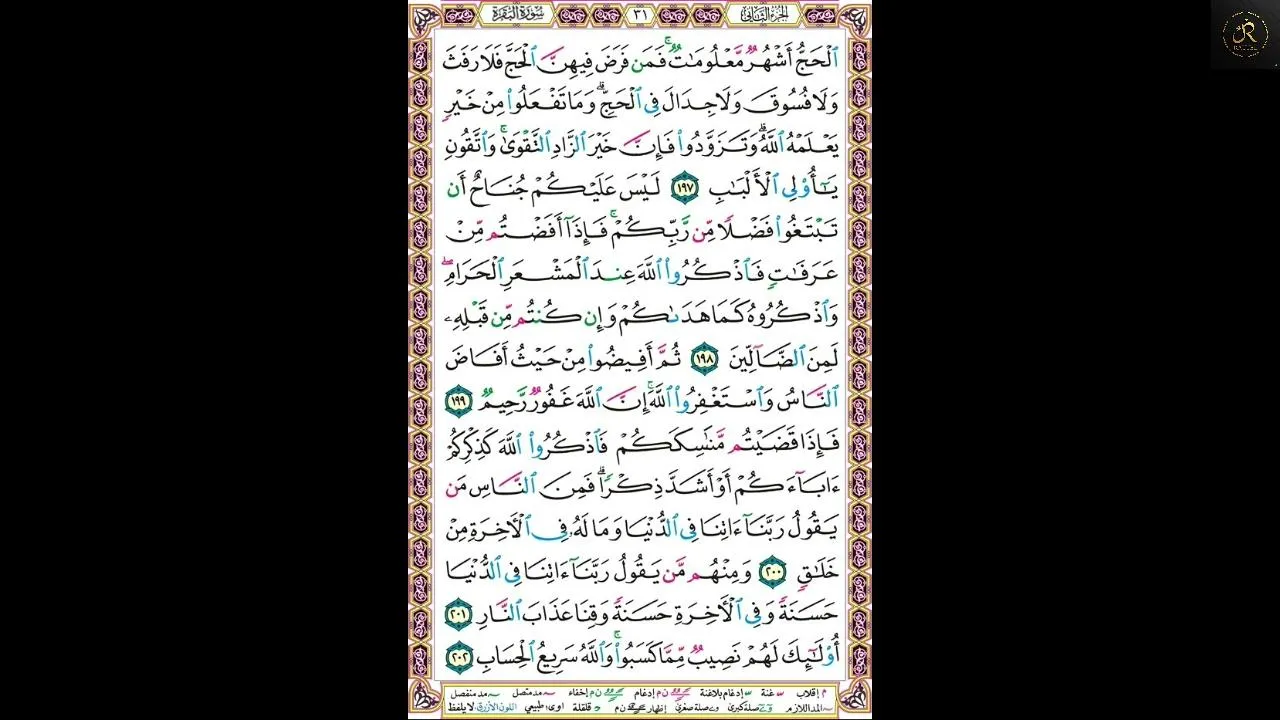 سُورَةُ البَقَرَةِ
٣١
الجُزْءُ الثَّانِي
ٱلْحَجُّ أَشْهُرٌ مَّعْلُومَٰتٌ ۚ فَمَن فَرَضَ فِيهِنَّ ٱلْحَجَّ فَلَا رَفَثَ
وَلَا فُسُوقَ وَلَا جِدَالَ فِى ٱلْحَجِّ ۗ وَمَا تَفْعَلُوا۟ مِنْ خَيْرٍ
يَعْلَمْهُ ٱللَّهُ ۗ وَتَزَوَّدُوا۟ فَإِنَّ خَيْرَ ٱلزَّادِ ٱلتَّقْوَىٰ ۚ وَٱتَّقُونِ
يَٰٓأُو۟لِى ٱلْأَلْبَٰبِ ١٩٧ لَيْسَ عَلَيْكُمْ جُنَاحٌ أَن
تَبْتَغُوا۟ فَضْلًا مِّن رَّبِّكُمْ ۚ فَإِذَآ أَفَضْتُم مِّنْ
عَرَفَٰتٍ فَٱذْكُرُوا۟ ٱللَّهَ عِندَ ٱلْمَشْعَرِ ٱلْحَرَامِ ۖ
وَٱذْكُرُوهُ كَمَا هَدَىٰكُمْ وَإِن كُنتُم مِّن قَبْلِهِۦ
لَمِنَ ٱلضَّآلِّينَ ١٩٨ ثُمَّ أَفِيضُوا۟ مِنْ حَيْثُ أَفَاضَ
ٱلنَّاسُ وَٱسْتَغْفِرُوا۟ ٱللَّهَ ۚ إِنَّ ٱللَّهَ غَفُورٌ رَّحِيمٌ ١٩٩
فَإِذَا قَضَيْتُم مَّنَٰسِكَكُمْ فَٱذْكُرُوا۟ ٱللَّهَ كَذِكْرِكُمْ
ءَابَآءَكُمْ أَوْ أَشَدَّ ذِكْرًا ۗ فَمِنَ ٱلنَّاسِ مَن
يَقُولُ رَبَّنَآ ءَاتِنَا فِى ٱلدُّنْيَا وَمَا لَهُۥ فِى ٱلْأَخِرَةِ مِنْ
خَلَٰقٍ ٢٠٠ وَمِنْهُم مَّن يَقُولُ رَبَّنَآ ءَاتِنَا فِى ٱلدُّنْيَا
حَسَنَةً وَفِى ٱلْأَخِرَةِ حَسَنَةً وَقِنَا عَذَابَ ٱلنَّارِ ٢٠١
أُو۟لَٰٓئِكَ لَهُمْ نَصِيبٌ مِّمَّا كَسَبُوا۟ ۚ وَٱللَّهُ سَرِيعُ ٱلْحِسَابِ ٢٠٢
م إقلاب غنة إدغام بلاغنة ن م إدغام ن م إخفاء مد متصل مد منفصل
المد اللازم صلة كبرى صلة صغرى إظهار ن م قلقلة اوى: طبيعي اللون الأزرق لا يلفظ